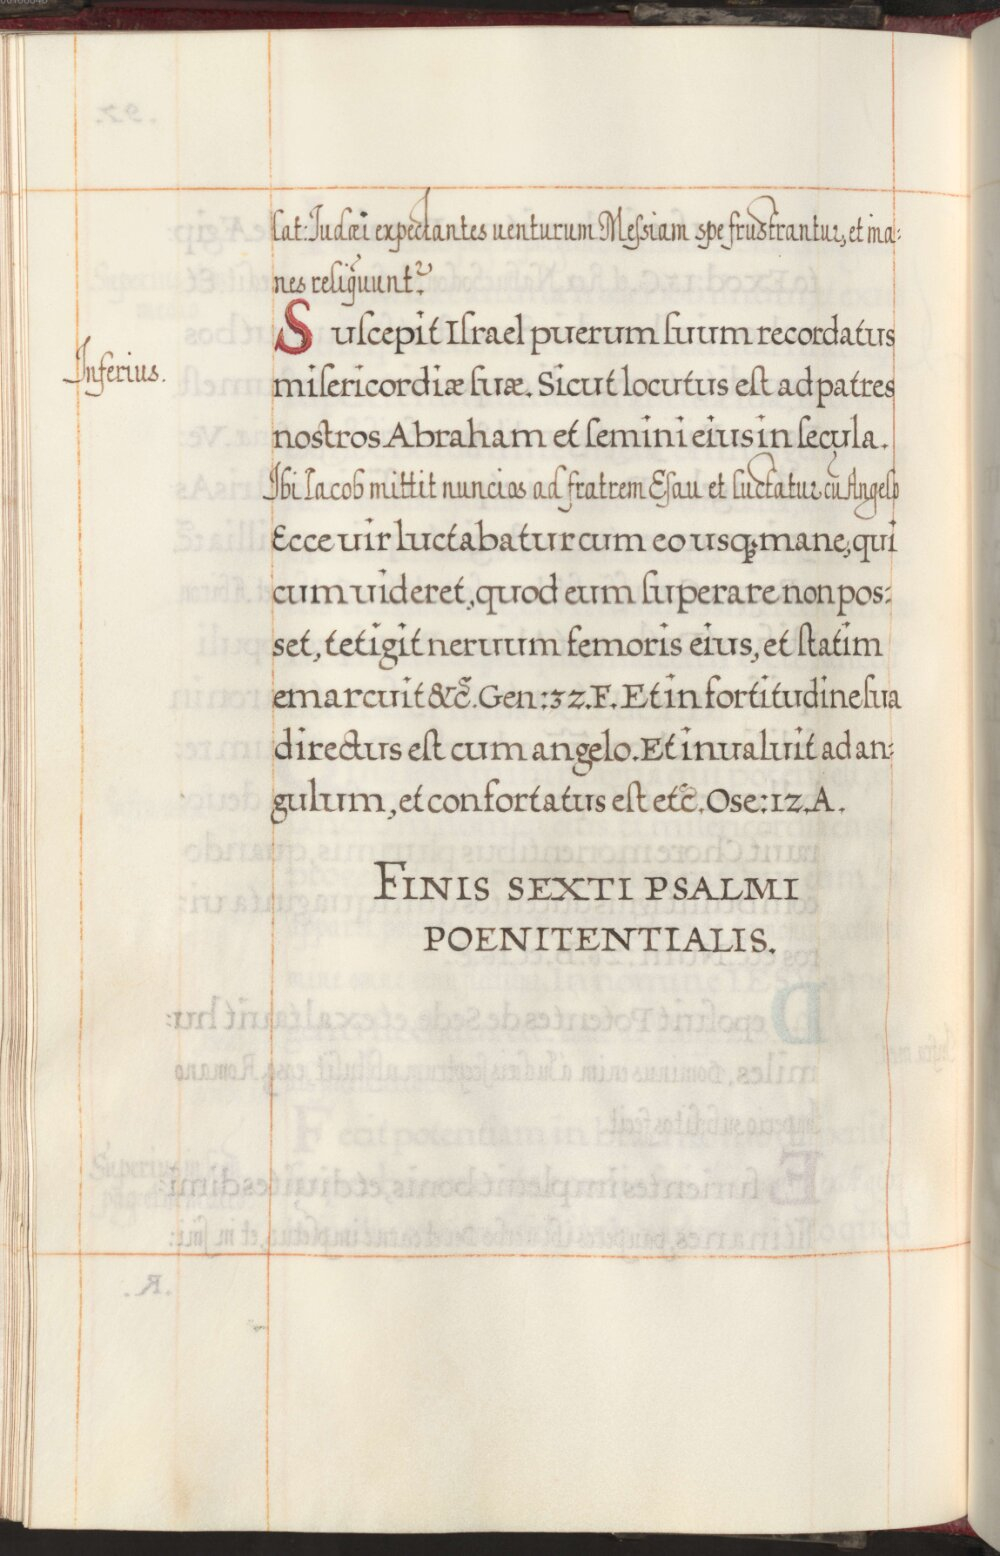 lat: Judæi expectantes uenturum Messiam spe frustrantur, et ina:
nes reliquunt.
Suscepit Israel puerum suum recordatus
Inferius.
misericordiæ suæ. Sicut locutus est ad patres
nostros Abraham et semini eius in secula.
Ibi Iacob mittit nuncios ad fratrem Esau et luctatur cũ Angelo
Ecce uir luctabatur cum eo usq; mane, qui
cum uideret, quod eum superare non pos:
set, tetigit neruum femoris eius, et statim
emarcuit &c̃. Gen: 32. F. Et in fortitudine sua
directus est cum angelo. Et inualuit ad an:
gulum, et confortatus est etc̃. Ose: 12. A.
FINIS SEXTI PSALMI
POENITENTIALIS.